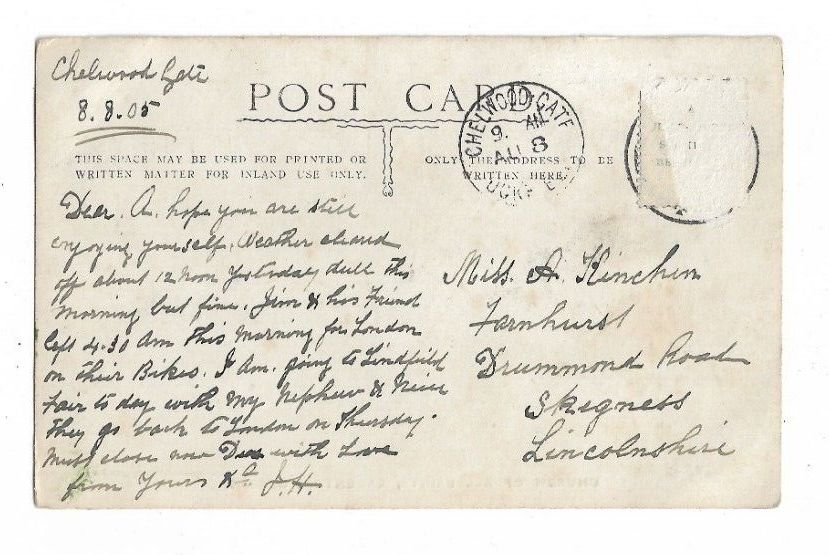 Chelwood Gate
8.8.05
POST CARD
THIS SPACE MAY BE USED FOR PRINTED OR
WRITTEN MATTER FOR INLAND USE ONLY.
ONLY THE ADDRESS TO BE
WRITTEN HERE.
CHELWOOD GATE
9. AM
AU 8
Dear. A. hope you are still
enjoying yourself. Weather cleared
off about 12 Noon Yesterday dull this
Morning but fine. Jim & his Friend
left 4.30 Am This Morning for London
on their Bikes. I Am. going to Lindfield
Fair to day with my Nephew & Neice
They go back to London on Thursday.
Must close now Dear with Love
from Yours &c J.H.
Miss. A. Kinchin
Farnhurst
Drummond Road
Skegness
Lincolnshire